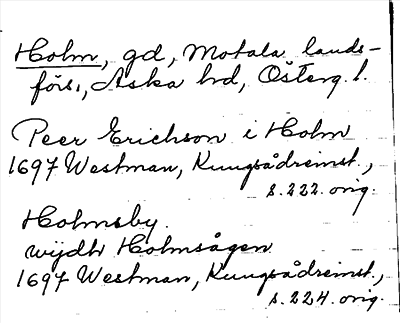 Holm, gd, Motala lands-
förs., Aska hd, Österg. l.
Peer Erichson i Holm
1697 Westman, Kungsådreinst.,
s. 222. orig.
Holmsby.
wijdh Holmsågen
1697 Westman, Kungsådreinst.,
s. 224. orig.